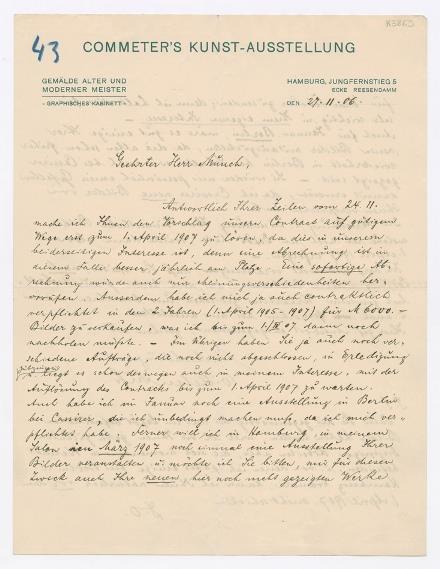 K3863
43
COMMETER'S KUNST-AUSSTELLUNG
GEMÄLDE ALTER UND
MODERNER MEISTER
- GRAPHISCHES KABINETT -
HAMBURG, JUNGFERNSTIEG 5
ECKE REESENDAMM
DEN 27.11.06.
Geehrter Herr Munch,
Antwortlich Ihrer Zeilen vom 24.11.
mache ich Ihnen den Vorschlag unsere Contract auf gütigem
Wege erst zum 1. April 1907 zu lösen, da dies in unserem
beiderseitigen Interesse ist, denn eine Abrechnung ist in
diesem Falle besser jährlich am Platze. Eine sofortige Ab-
rechnung würde auch nur Meinungsverschiedenheiten her-
vorrufen. Ausserdem habe ich mich ja auch contraktlich
verpflichtet in den 2 Jahren (1. April 1905-1907) für M 6000.-
Bilder zu verkaufen, was ich bis zum 1/IV 07 dann noch
nachholen müsste. - Im Übrigen haben Sie ja auch noch ver-
schiedene Aufträge, die noch nicht abgeschlossen, in Erledigung
u. liegt es schon deswegen auch in meinem Interesse, mit der
Auflösung des Contracts bis zum 1. April 1907 zu warten.
Auch habe ich im Januar noch eine Ausstellung in Berlin
bei Cassirer, die ich unbedingt machen muss, da ich mich ver-
pflichtet habe. Ferner will ich in Hamburg, in meinem
Salon im März 1907 noch einmal eine Ausstellung Ihrer
Bilder veranstalten u. möchte ich Sie bitten, mir für diesen
Zweck auch Ihre neuen, hier noch nicht gezeigten Werke